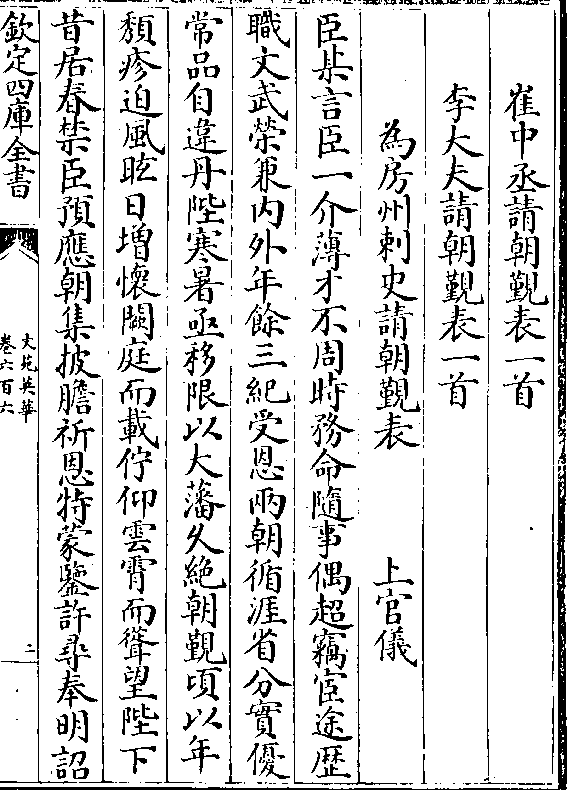 崔中丞請朝覲表一首
李大夫請朝覲表一首
為房州刺史請朝覲表 上官儀
臣某言臣一介薄才不周時務命隨事偶超竊宦途歴
職文武榮兼内外年餘三紀受恩兩朝循涯省分實優
常品自違丹陛寒暑亟移限以大藩久絶朝覲頃以年
頽疹迫風眩日增懷闕庭而載佇仰雲霄而聳望陛下
昔居春禁臣預應朝集披膽祈恩特蒙鑒許尋奉明詔
欽定四庫全書
文苑英華
卷六百六
二